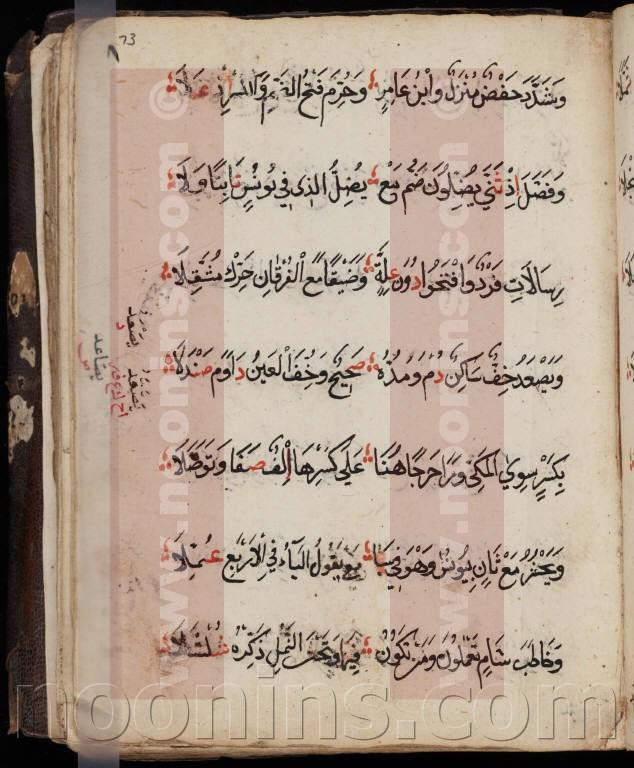 73
وَشَدَّدَ حَفْصٌ مُنْزَلٌ وَابْنُ عَامِرٍ وَحُرِّمَ فَتْحُ الضَّمِّ وَالْكَسْرِ إِذْ عَلَا
وَفُصِّلَ إِذْ ثَنَّى يَضِلُّونَ ضُمَّ مَعْ يَضِلُّوا الَّذِي فِي يُونُسٍ ثَابِتًا وَلَا
رِسَالَاتِ فَرْدٌ وَافْتَحُوا دُونَ عِلَّةٍ وَضَيْقًا مَعَ الْفُرْقَانِ حَرِّكْ مُثَقِّلَا
وَيَصْعَدُ خِفٌّ سَاكِنٌ دُمْ وَمَدُّهُ صَحِيحٌ وَخِفُّ الْعَيْنِ دَاوَمَ صَنْدَلَا
بِكَسْرٍ سِوَى الْمَكِّي وَرَا حَرَجًا هُنَا عَلَى كَسْرِهَا إِلْفٌ صَفَا وَتَوَصَّلَا
وَيَحْشُرُ مَعْ ثَانٍ بِيُونُسَ وَهْوَ فِي سَبَا مَعْ يَقُولُ الْيَاءُ فِي الْأَرْبَعِ عُمِّلَا
وَخَاطَبَ شَامٍ تَعْمَلُونَ وَمَنْ تَكُونُ فِيهَا وَتَحْتَ النَّمْلِ ذَكِّرْهُ شُلْشُلَا
يصعد
د
يصاعد
ص
يصعد
© www.noonins.com
www.noonins.com
noonins.com